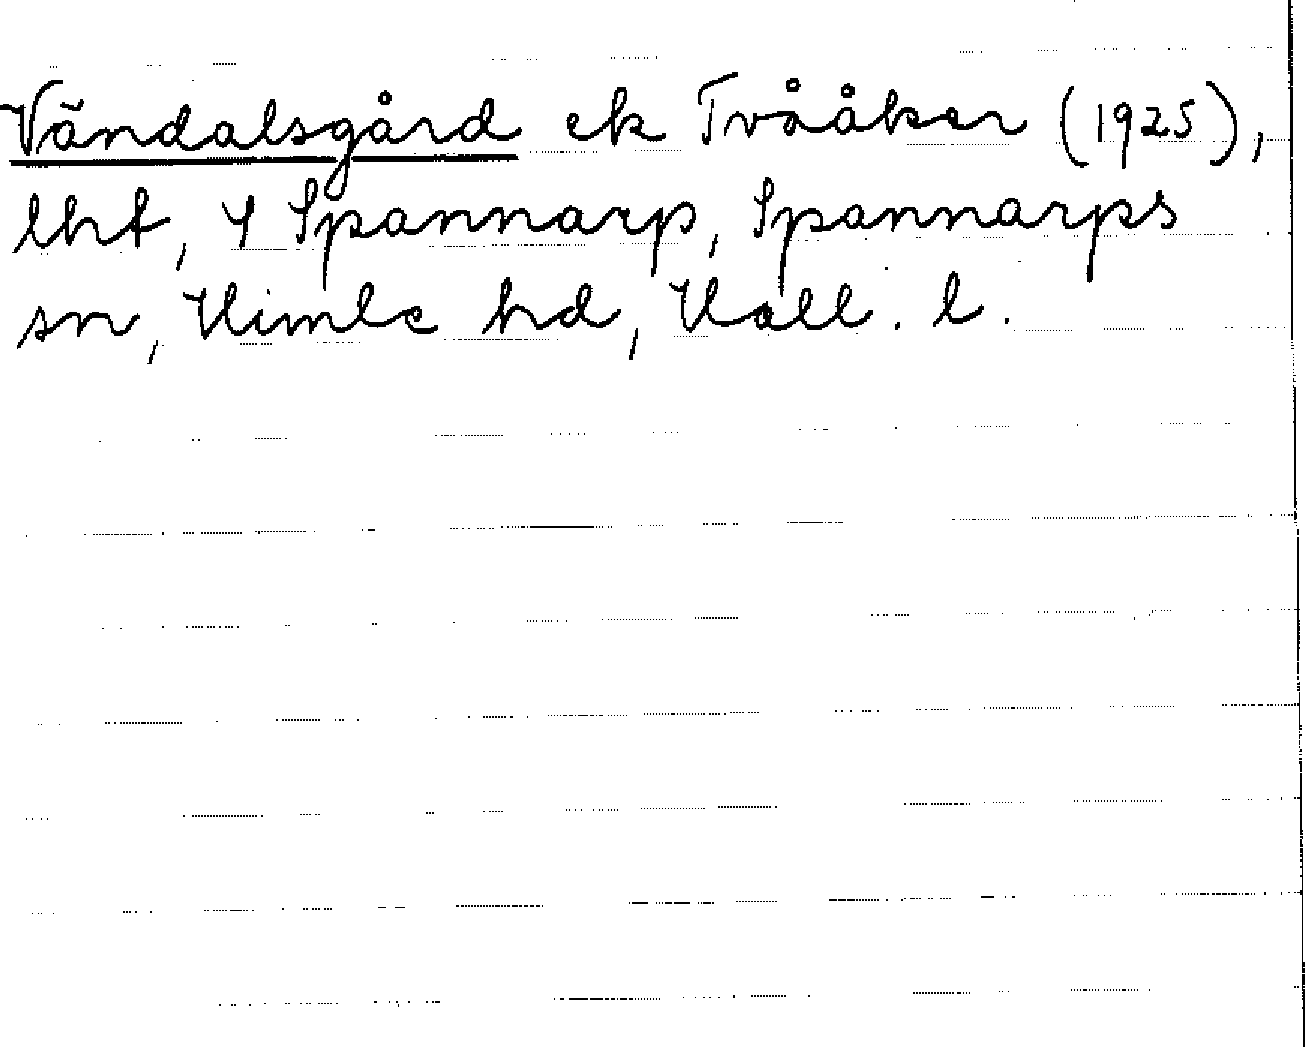 Vändalsgård ek Tvååker (1925),
lht, 4 Spannarp, Spannarps
sn, Himle hd, Hall. l.